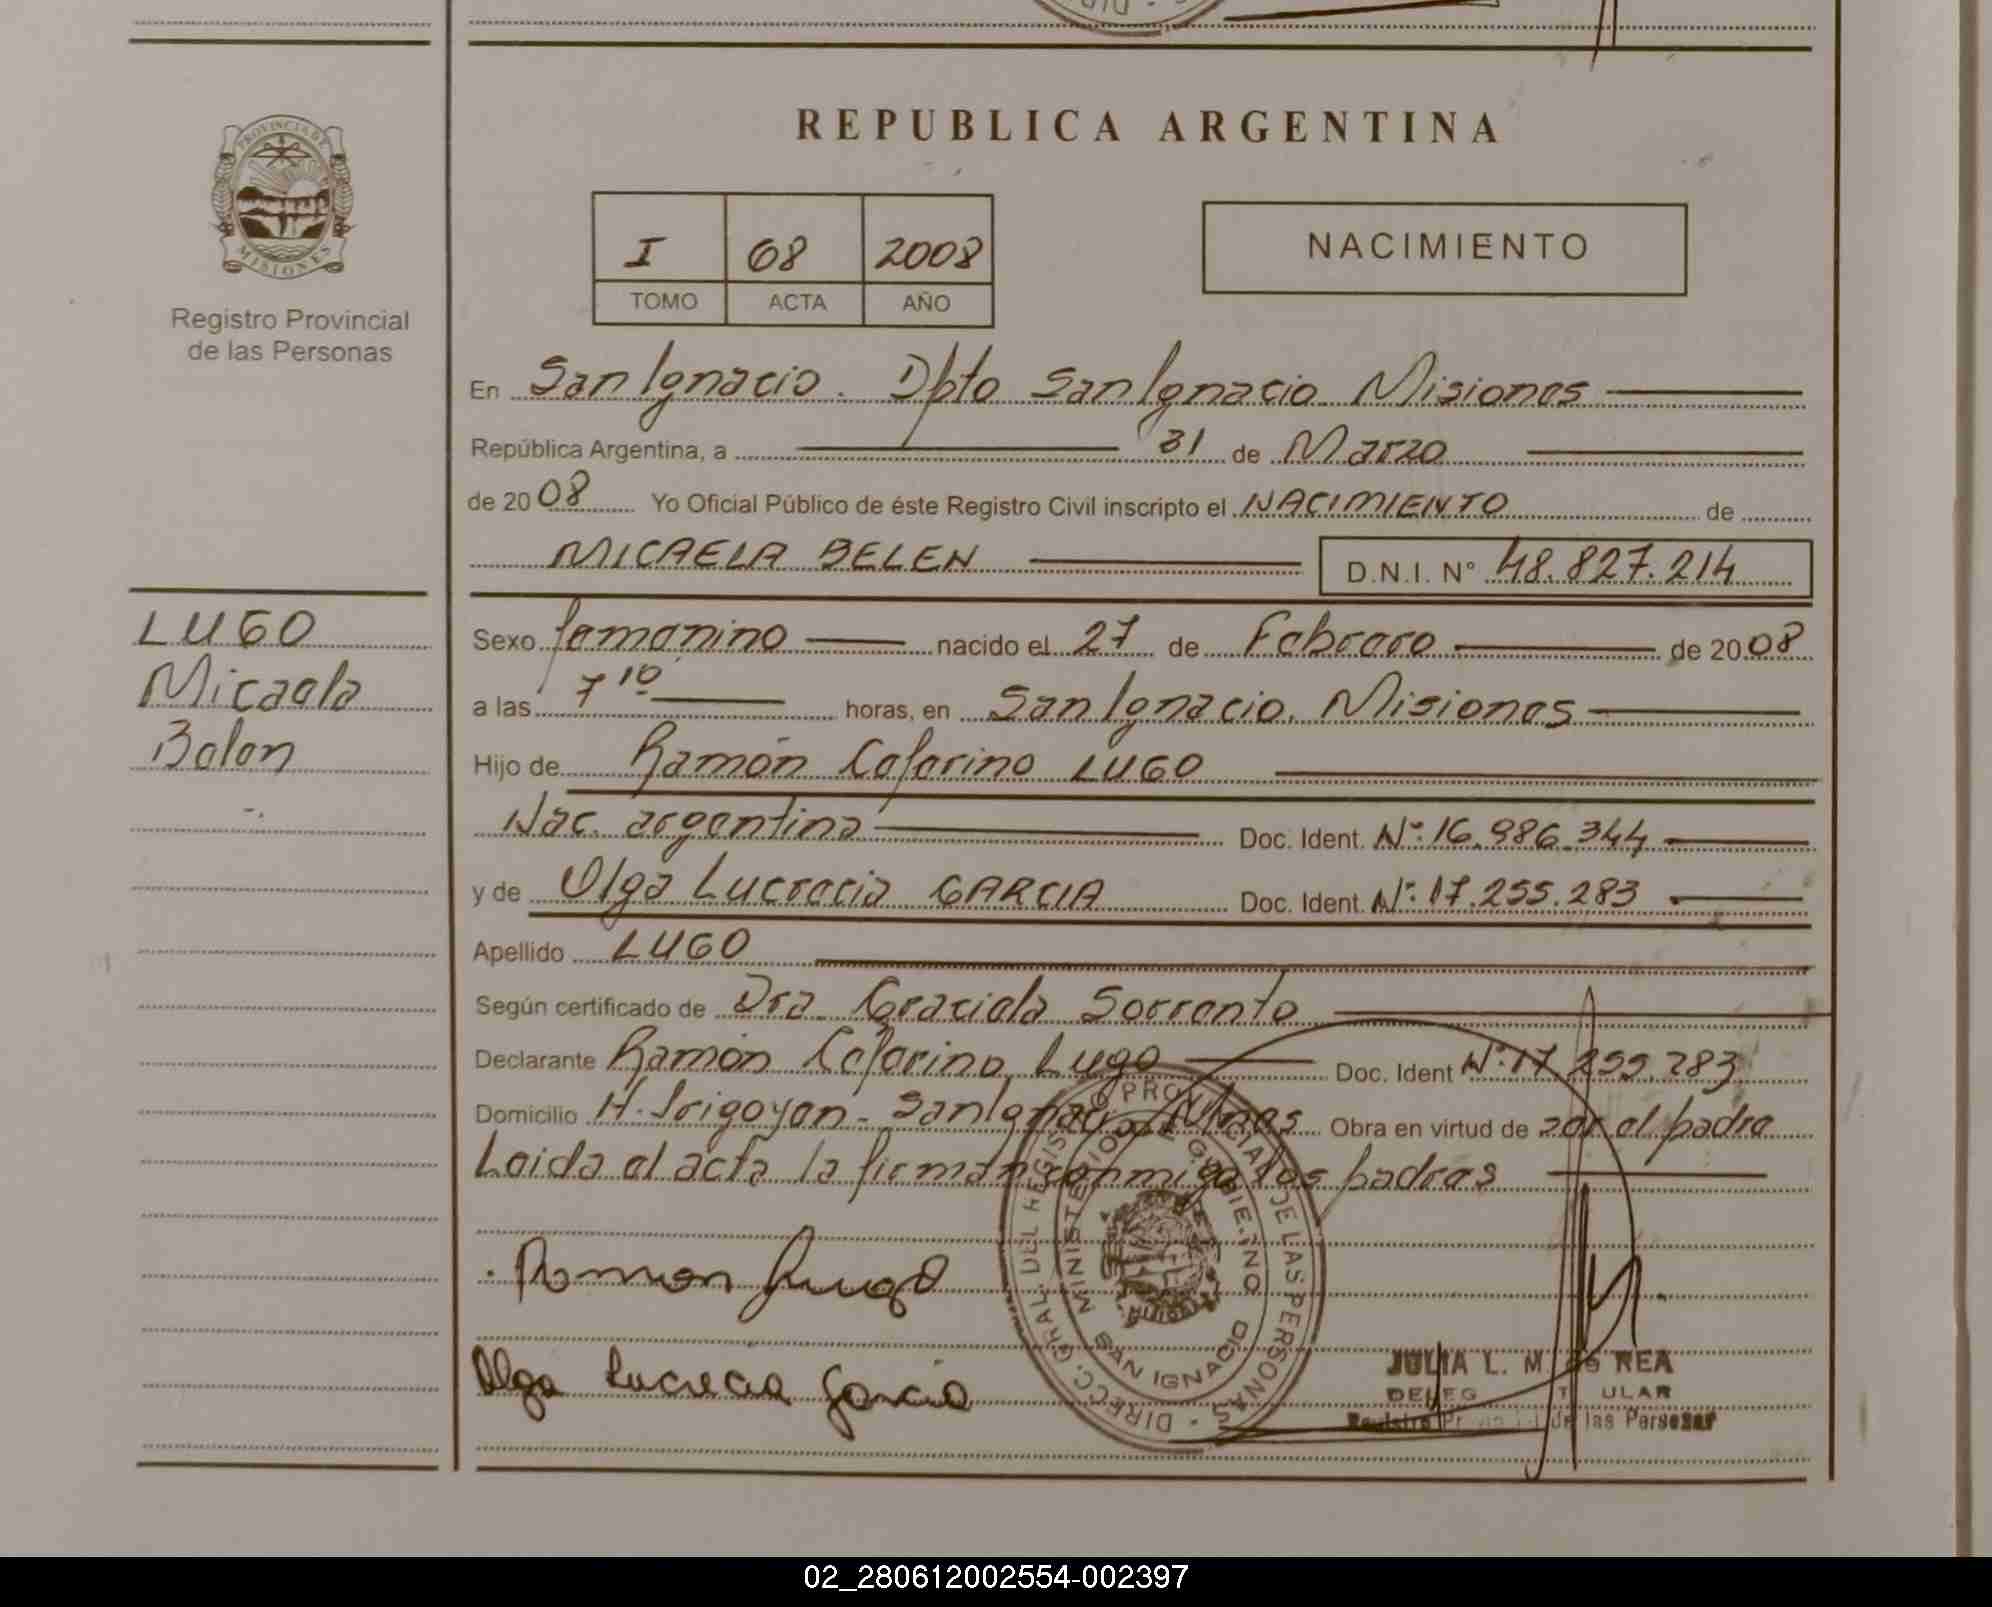 PROVINCIA DE
MISIONES
Registro Provincial
de las Personas
LUGO
Micaela
Belen
REPUBLICA ARGENTINA
I 68 2008
TOMO ACTA AÑO
NACIMIENTO
En San Ignacio. Dpto San Ignacio Misiones
República Argentina, a 31 de Marzo
de 2008 Yo Oficial Público de éste Registro Civil inscripto el NACIMIENTO de
MICAELA BELEN D.N.I. N° 48.827.214
Sexo femenino nacido el 27 de Febrero de 2008
a las 7 10 horas, en San Ignacio. Misiones
Hijo de Ramón Ceferino LUGO
Nac. argentina Doc. Ident. N°: 16.986.344
y de Olga Lucrecia GARCIA Doc. Ident. N°: 17.255.283
Apellido LUGO
Según certificado de Dra. Graciela Sorrento
Declarante Ramón Ceferino Lugo Doc. Ident N°: 17.255.283
Domicilio H. Irigoyen - San Ignacio Mnes Obra en virtud de ser el padre
Leida el acta la firman conmigo los padres
Ramon Lugo
Olga Lucrecia Garcia
DIRECC. GRAL. DEL REGISTRO PROVINCIAL DE LAS PERSONAS
MINISTERIO DE GOBIERNO
SAN IGNACIO
JULIA L. M de REA
Registro Provincial de las Personas
02_280612002554-002397